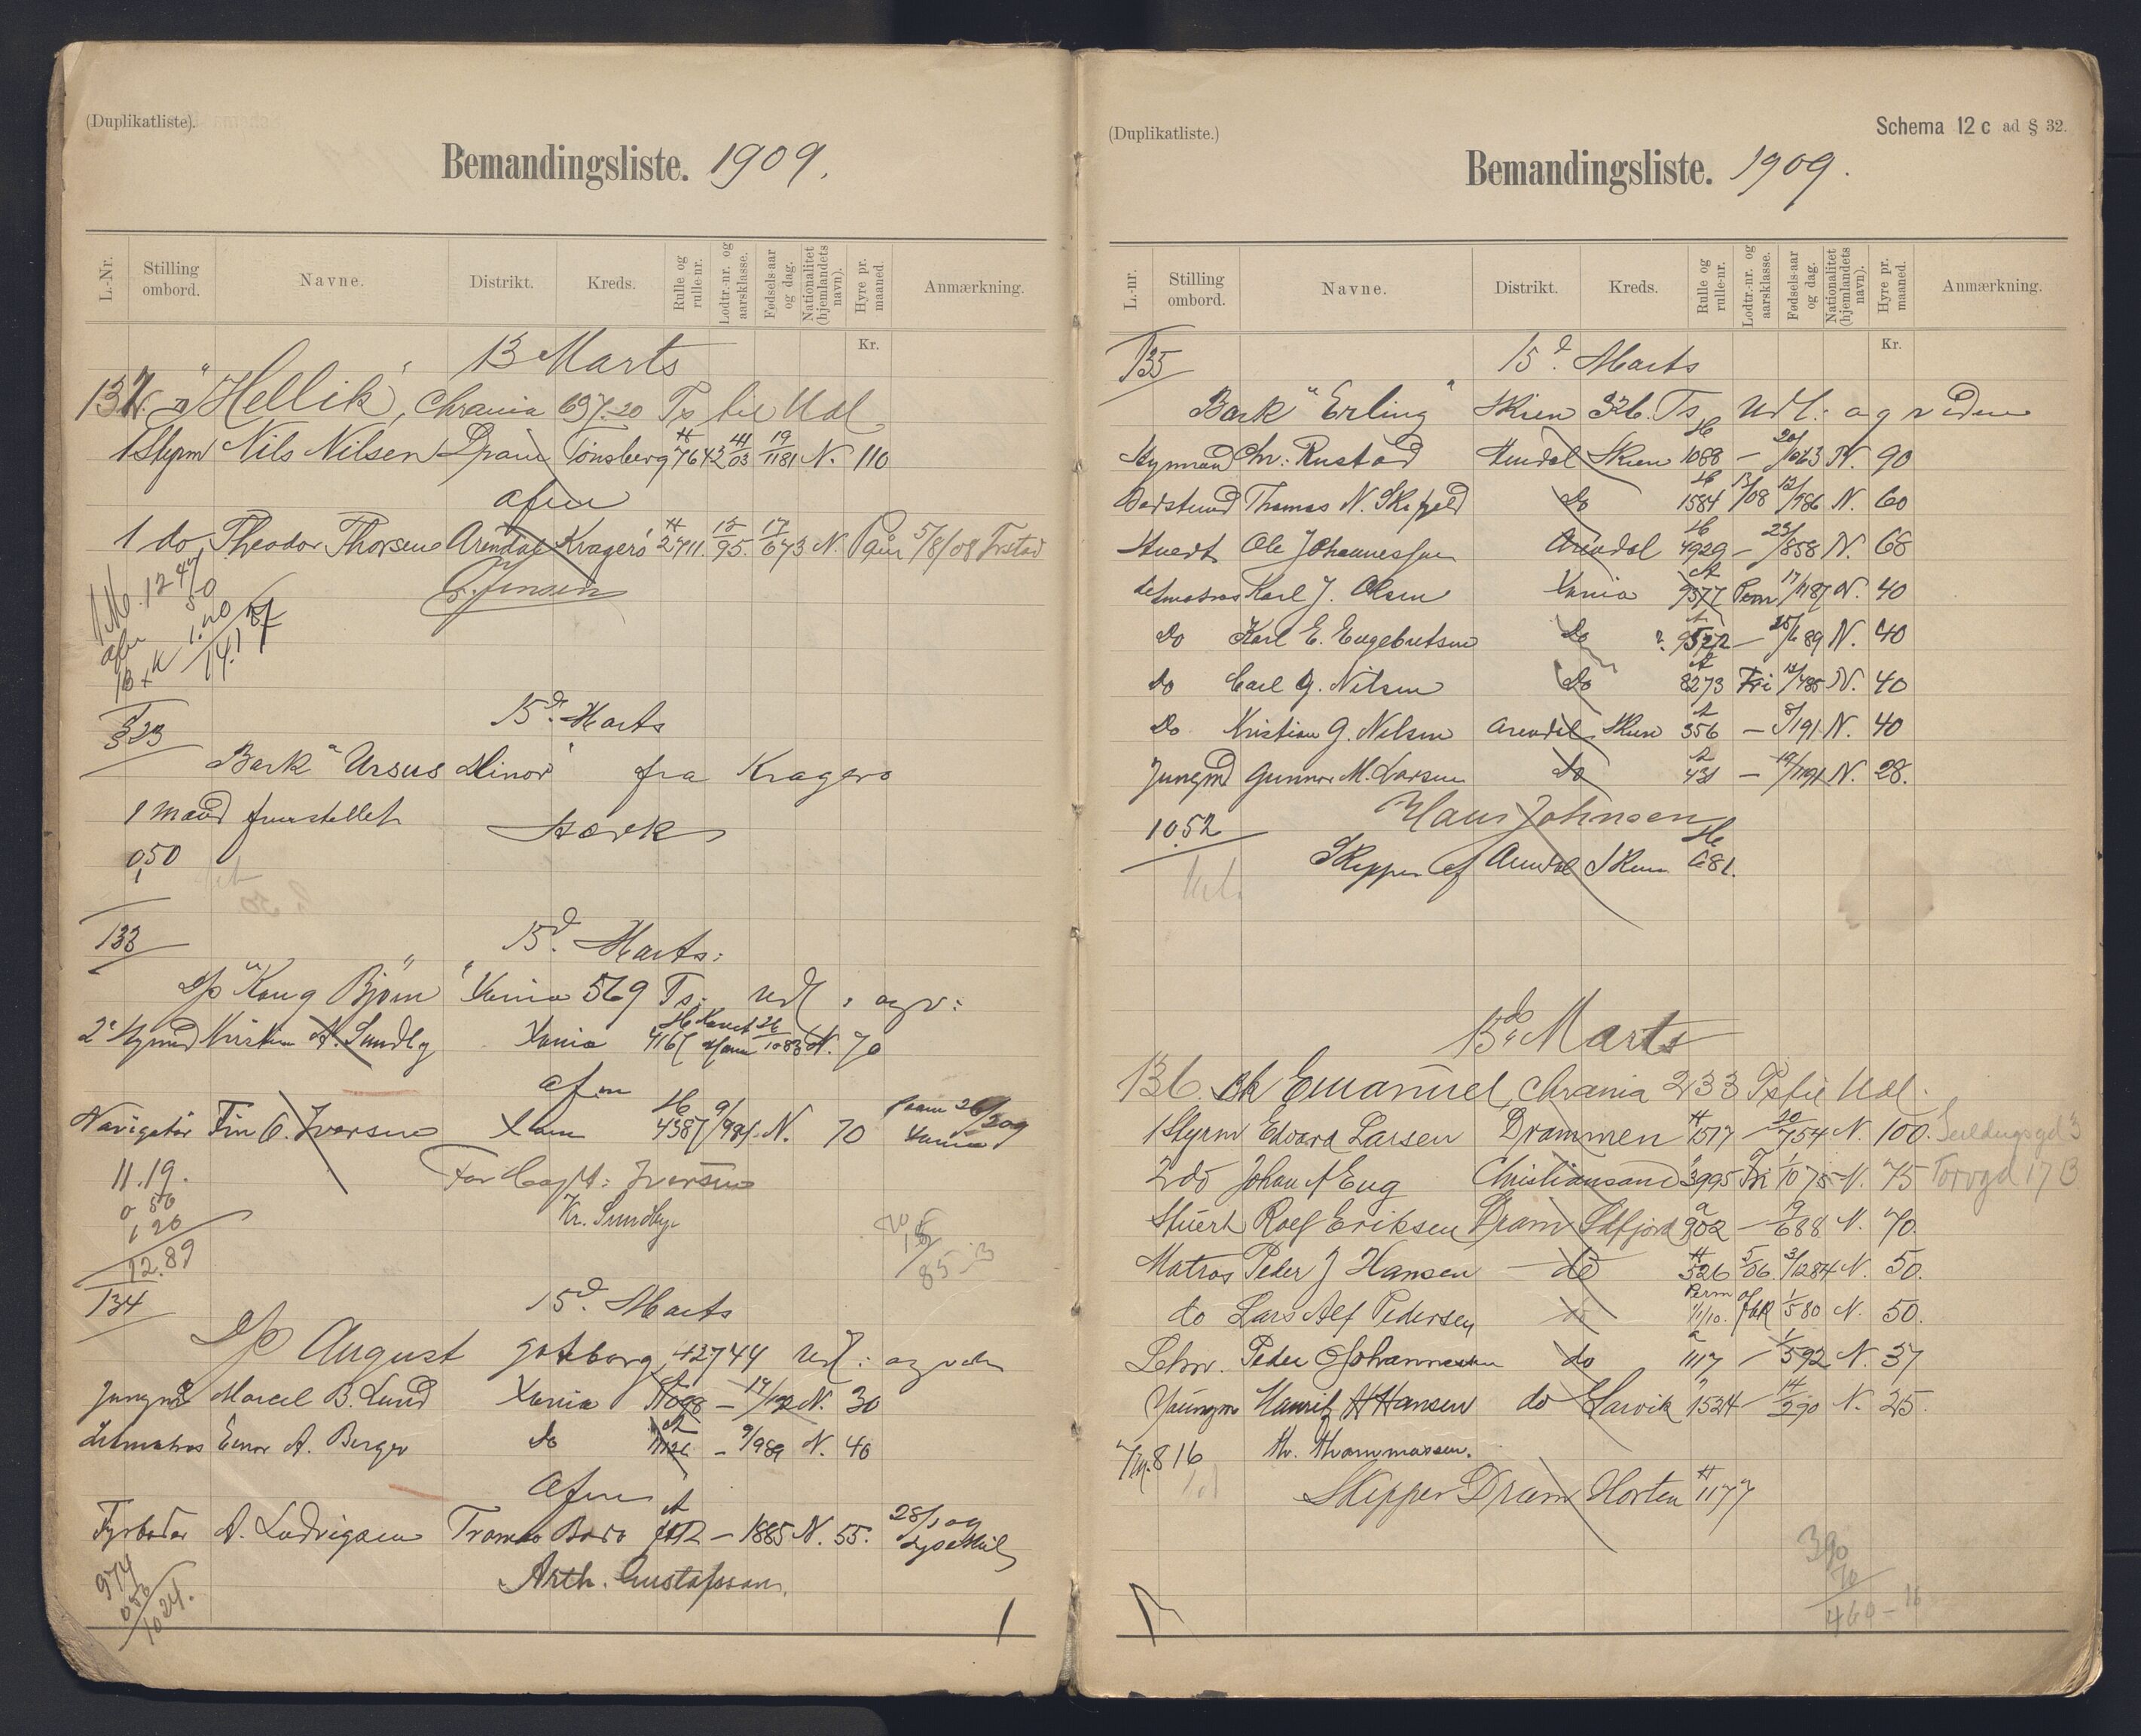 (Duplikatliste).
Bemandingsliste. 1909.
L.-Nr. Stilling ombord. Navne. Distrikt. Kreds. Rulle og rulle-nr. Lodtr.-nr. og aarsklasse. Fødsels-aar og dag. Nationalitet (hjemlandets navn). Hyre pr. maaned. Anmærkning.
Kr.
13 Marts
"Hellik", Chrania 697.20 Ts til Udl
1 Styrm Nils Nilsen Dram Tønsberg H 7642 44/03 19/11 81 N. 110
afm
1 do, Theodor Thorsen Arendal Kragerø H 2711. 12/95. 17/6 73 N. Paam 5/8/08 Frstad
Jensen
afm 50
1.20
14.17
15d. Marts
Bark "Ursus Minor" fra Kragerø
1 mand
0,50
133
15d. Marts:
D/S "Kong Bjørn" Xania 569 Ts: Udl: og v:
2 Styrmd Kristian A. Sundby Xania H 4167 26/10 83 N. 70
afm
Navigatør Fin C. Iversen Xania H 4387 9/9 81. N. 70 Xania
11.19.
0 50
1 20
12.89
For Capt: Iversen
Kr. Sundbye
134
15d. Marts
D/S August Gøtborg 42744 Udl: og v
Jungmd Marcel B. Lund Xania N. 30
Letmatros Einar A. Berger do 9/9 89 N. 40
afm
Fyrbøder A. Ludvigsen Tromsø Bodø A – 1885 N. 55. 28/1 09 Lysekil
Arth. Gustafsson.
974
050
1024.
(Duplikatliste.)
Schema 12 c ad § 32.
Bemandingsliste. 1909.
L.-nr. Stilling ombord. Navne. Distrikt. Kreds. Rulle og rulle-nr. Lodtr.-nr. og aarsklasse. Fødsels-aar og dag. Nationalitet (hjemlandets navn). Hyre pr. maaned. Anmærkning.
Kr.
135
15d. Marts
Bark "Erling" Skien 326. Ts. Udl: og viden
Styrmand Chr: Rustad Arendal Skien H 1088 – 20/6 63 N. 90
Thomas N. do H 1584 13/08 12/9 86 N. 60
Stuert Ole Johannessen Arendal H 4929 – 23/8 58 N. 68
Letmatros Karl J. Olsen Xania A 9377 Perm 17/11 87 N. 40
Do Karl E. Engebretsen Do 9522 – 25/6 89 N. 40
Do Carl G. Nilsen Do A 8273 Fri 12/4 85 N. 40
Do Kristian G. Nilsen Arendal Skien A 356 – 8/1 91 N. 40
Jungmd Gunnar M. Larsen do A 431 – 19/11 91 N. 28.
Hans Johnsen
10.52
Skipper af Arendal Skien H 681.
15de Marts
136. Bk Emanuel, Chrania 233 Ts til Udl.
1 Styrm Edvard Larsen Drammen H 1517 – 20/7 54 N. 100.
2 do Johan A Eug Christiansand 3995 Fri 1/10 75 N. 75 Torvgd 17 B
Stuert Rolf Eriksen Dram Sdfjord a 902 – 9/6 88 N. 70.
Matros Peder J Hansen do H 526 5/06. 3/12 84 N. 50.
do Lars Alf Pedersen do Perm 1/1/10. 1/5 80 N. 50.
Letm. Peder Johannessen do a 1117 – 1/5 92 N. 37
Jungm Hauritz H Hansen do Larvik 1524 – 14/2 90 N. 25.
8 16
Th. Thommassen.
Skipper Dram Horten H 1177
390
70
460 – 16